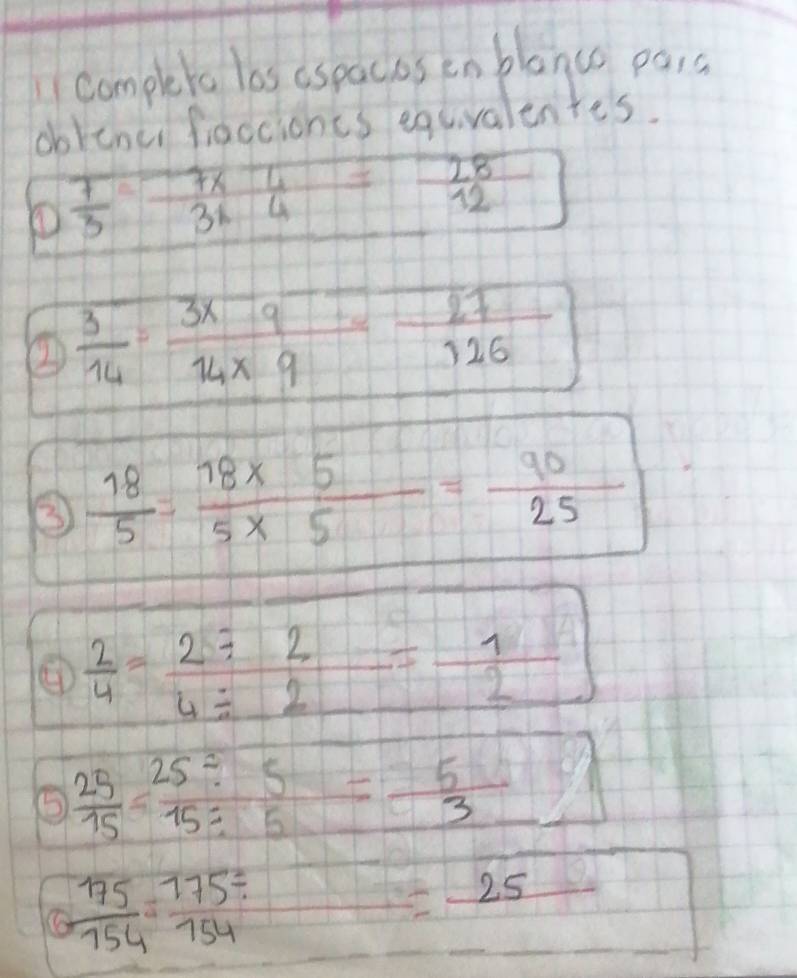 11 Completa los espacios en blanco para
obtener fracciones equivalentes.
① 7/3 = 7x 4 / 3x 4 = 28/12
② 3/14 = 3x 9 / 14x 9 = 27/126
③ 18/5 = 18x 5 / 5x 5 = 90/25
④ 2/4 = 2÷ 2 / 4÷ 2 = 1/2
⑤ 25/15 = 25÷ 5 / 15÷ 5 = 5/3
⑥ 175/154 = 175÷ / 154 = 25